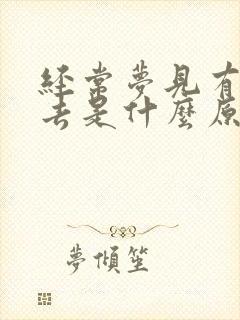 經常夢見有
去是什麼原
夢傾笙